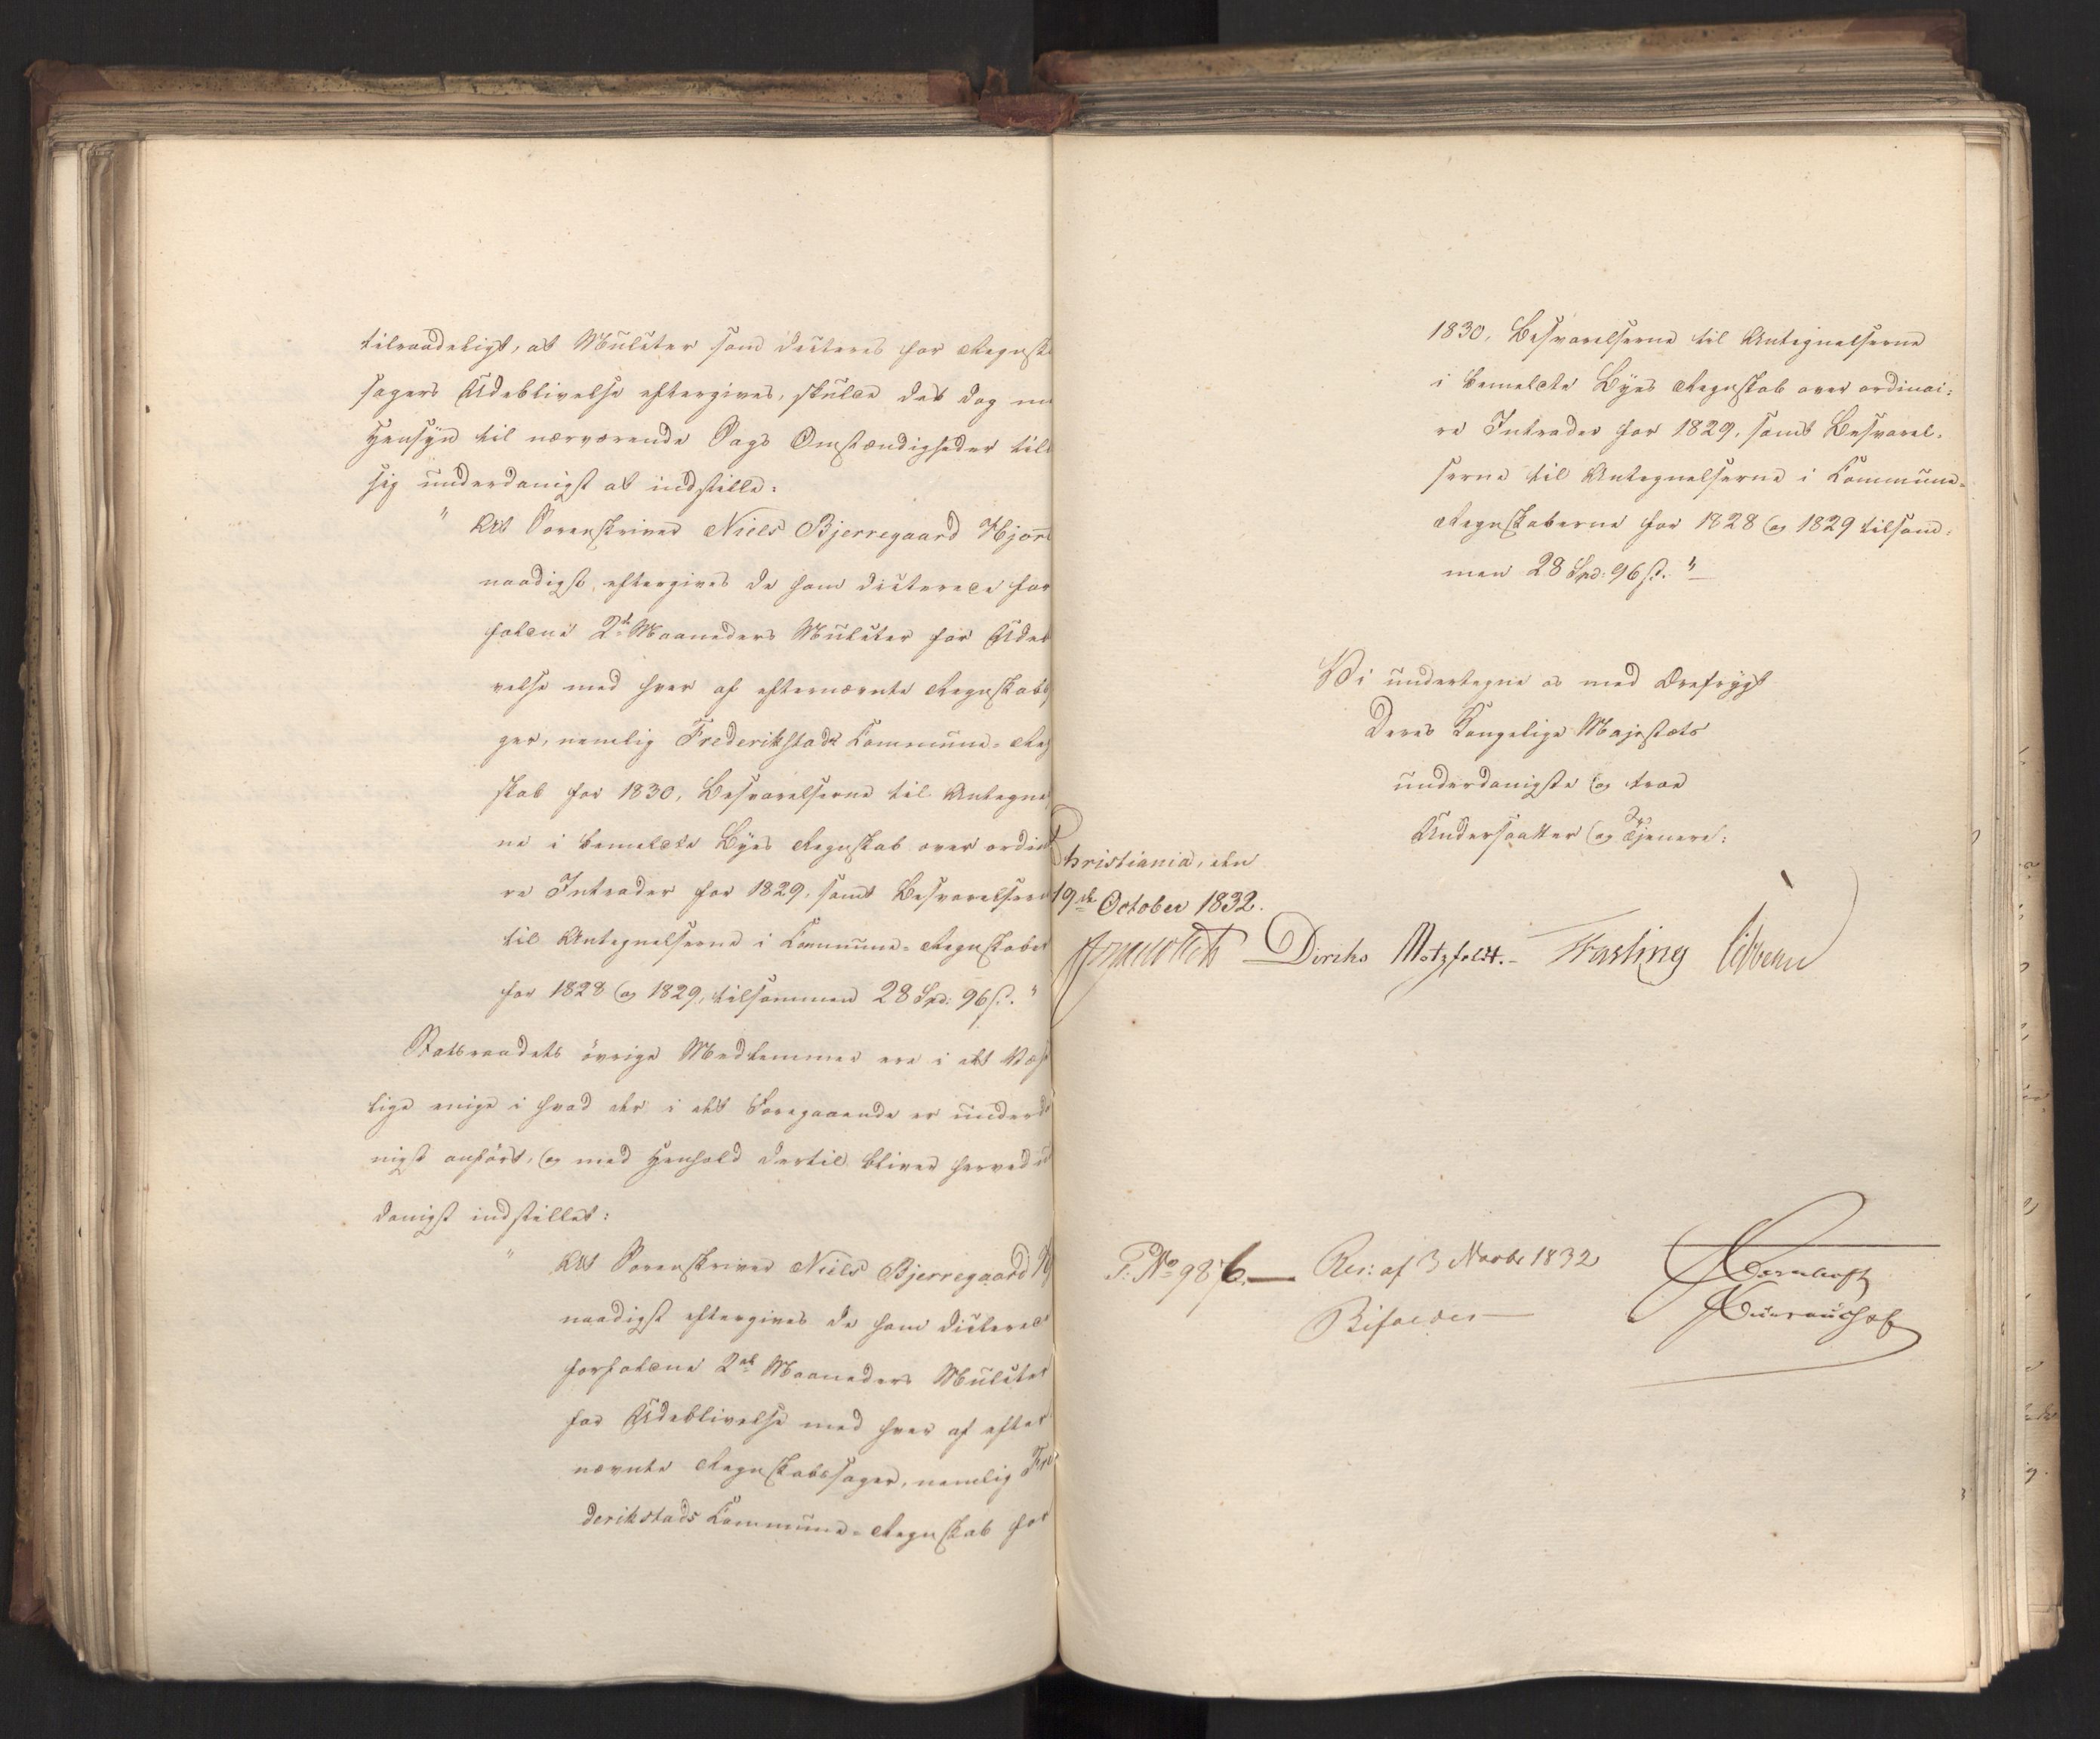 tilraadeligt, at Mulcter som dicteres for Regnskabs
sagers Udeblivelse eftergives, skulde det dog med
Hensyn til nærværende Sags Omstændigheder tillade
sig underdanigst at indstille:
" At Sorenskriver Niels Bjerregaard Hjort
naadigst eftergives de ham dicterede for
faldne 2de Maaneders Mulcter for Udebli
velse med hver af efternævnte Regnskabssa
ger, nemlig Frederikstads Commune-Regn
skab for 1830, Besvarelserne til Antegnelser
ne i bemeldte Byes Regnskab over ordinai
re Intrader for 1829, samt Besvarelserne
til Antegnelserne i Commune-Regnskaberne
for 1828 og 1829, tilsammen 28 Spd: 96 s. "
Statsraadets övrige Medlemmer ere i det Væsent
lige enige i hvad der i det Foregaaende er underda
nigst anført, og med Henhold dertil bliver herved under
danigst indstillet:
" At Sorenskriver Niels Bjerregaard Hj
naadigst eftergives de ham dicterede
forfaldne 2de Maaneders Mulcter
for Udeblivelse med hver af efter
nævnte Regnskabssager, nemlig Fre
derikstads Commune-Regnskab for
1830, Besvarelserne til Antegnelserne
i bemeldte Byes Regnskab over ordinai:
re Intrader for 1829, samt Besvarel-
serne til Antegnelserne i Commune-
Regnskaberne for 1828 og 1829 tilsam:
men 28 Spd: 96 s. "
Vi undertegne os med Ærefrygt
Deres Kongelige Majestæts
underdanigste og troe
Undersaatter og Tjenere:
Christiania, den
19de October 1832.
Diriks Motzfeldt.- Fasting
P: No 986. Res: af 3 Novbr 1832
Bifaldes